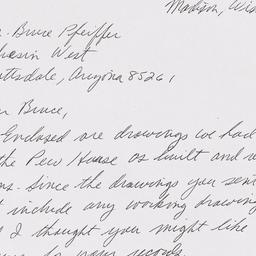 Madison, Wis
r. Bruce Pfeiffer
liesin West
ottsdale, Arizona 85261
ar Bruce,
Enclosed are drawings we had
the Pew House as built and
ns. Since the drawings you sent
t include any working drawing
I thought you might like
for your records.